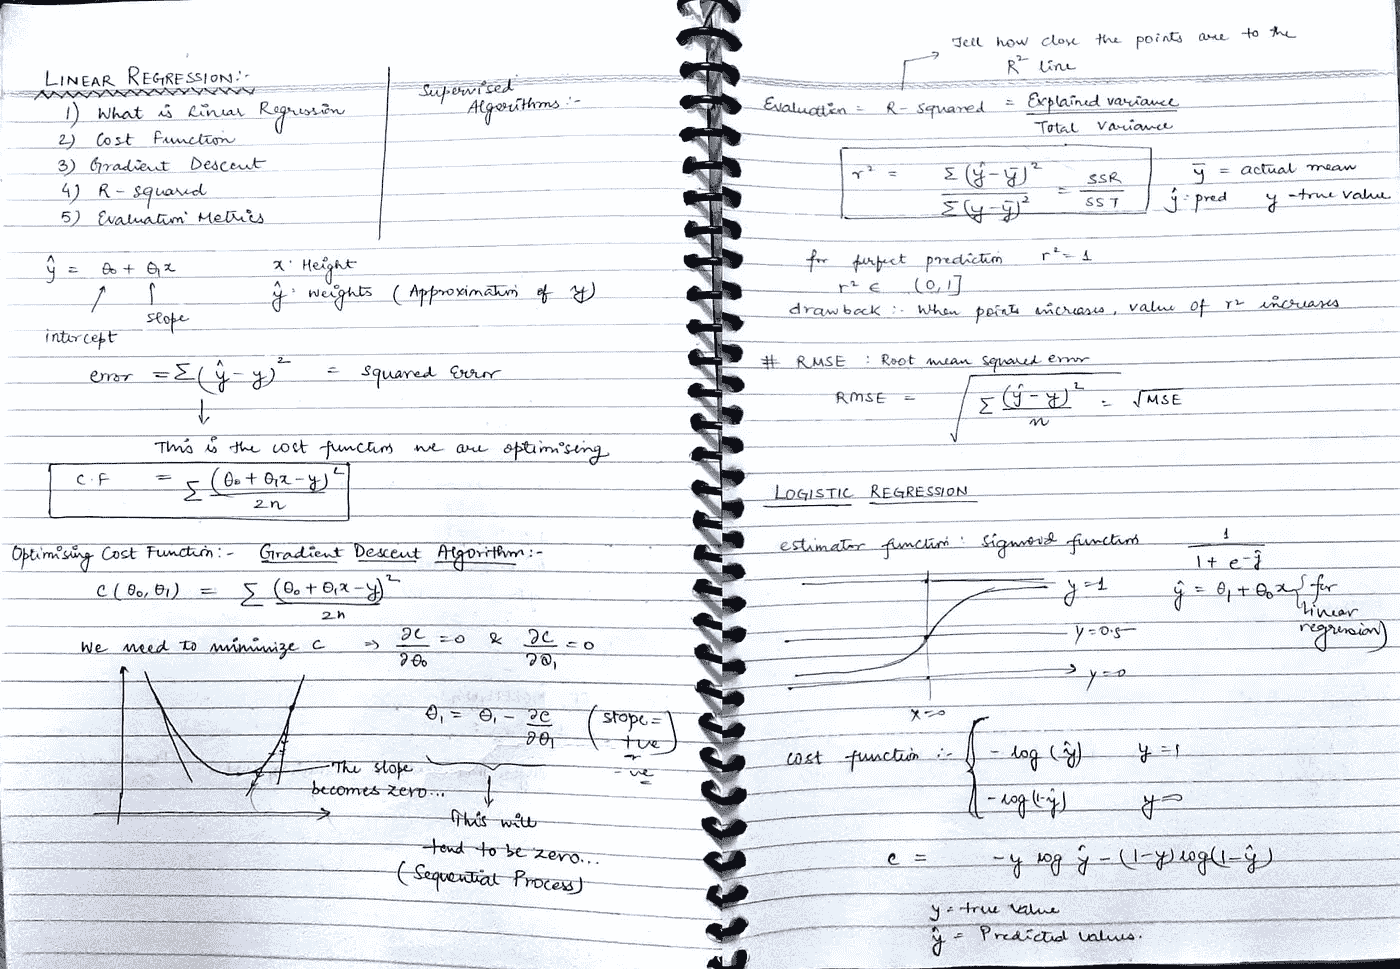 LINEAR REGRESSION:-
1) What is Linear Regression
2) Cost Function
3) Gradient Descent
4) R-squared
5) Evaluation Metrics
Supervised
Algorithms:-
ŷ = θ₀ + θ₁x
x: Height
ŷ: weights (Approximation of y)
slope
intercept
error = Σ(ŷ-y)² = Squared Error
This is the cost function we are optimising
C.F = Σ (θ₀ + θ₁x - y)² / 2n
Optimising Cost Function:- Gradient Descent Algorithm:-
C(θ₀, θ₁) = Σ (θ₀ + θ₁x - y)² / 2n
We need to minimize C ⇒ ∂C/∂θ₀ = 0 & ∂C/∂θ₁ = 0
θ₁ = θ₁ - ∂C/∂θ₁ (slope = +ve
-ve)
The slope
becomes zero...
This will
tend to be zero...
(Sequential Process)
Tell how close the points are to the
R² line
Evaluation = R-squared = Explained variance / Total variance
r² = Σ(ŷ-ȳ)² / Σ(y-ȳ)² = SSR / SST
ȳ = actual mean
ŷ: pred y - true value
for perfect prediction r² = 1
r² ∈ (0,1]
drawback:- When points increases, value of r² increases
# RMSE : Root mean squared error
RMSE = √(Σ(ŷ-y)² / n) = √MSE
LOGISTIC REGRESSION
estimator function: Sigmoid function 1 / 1 + e^-ŷ
y=1
ŷ = θ₁ + θ₀x {for
linear
regression)
y=0.5
y=0
x=0
cost function :- { -log(ŷ) y=1
-log(1-ŷ) y=0
c = -y log ŷ - (1-y)log(1-ŷ)
y = true value
ŷ = Predicted values.